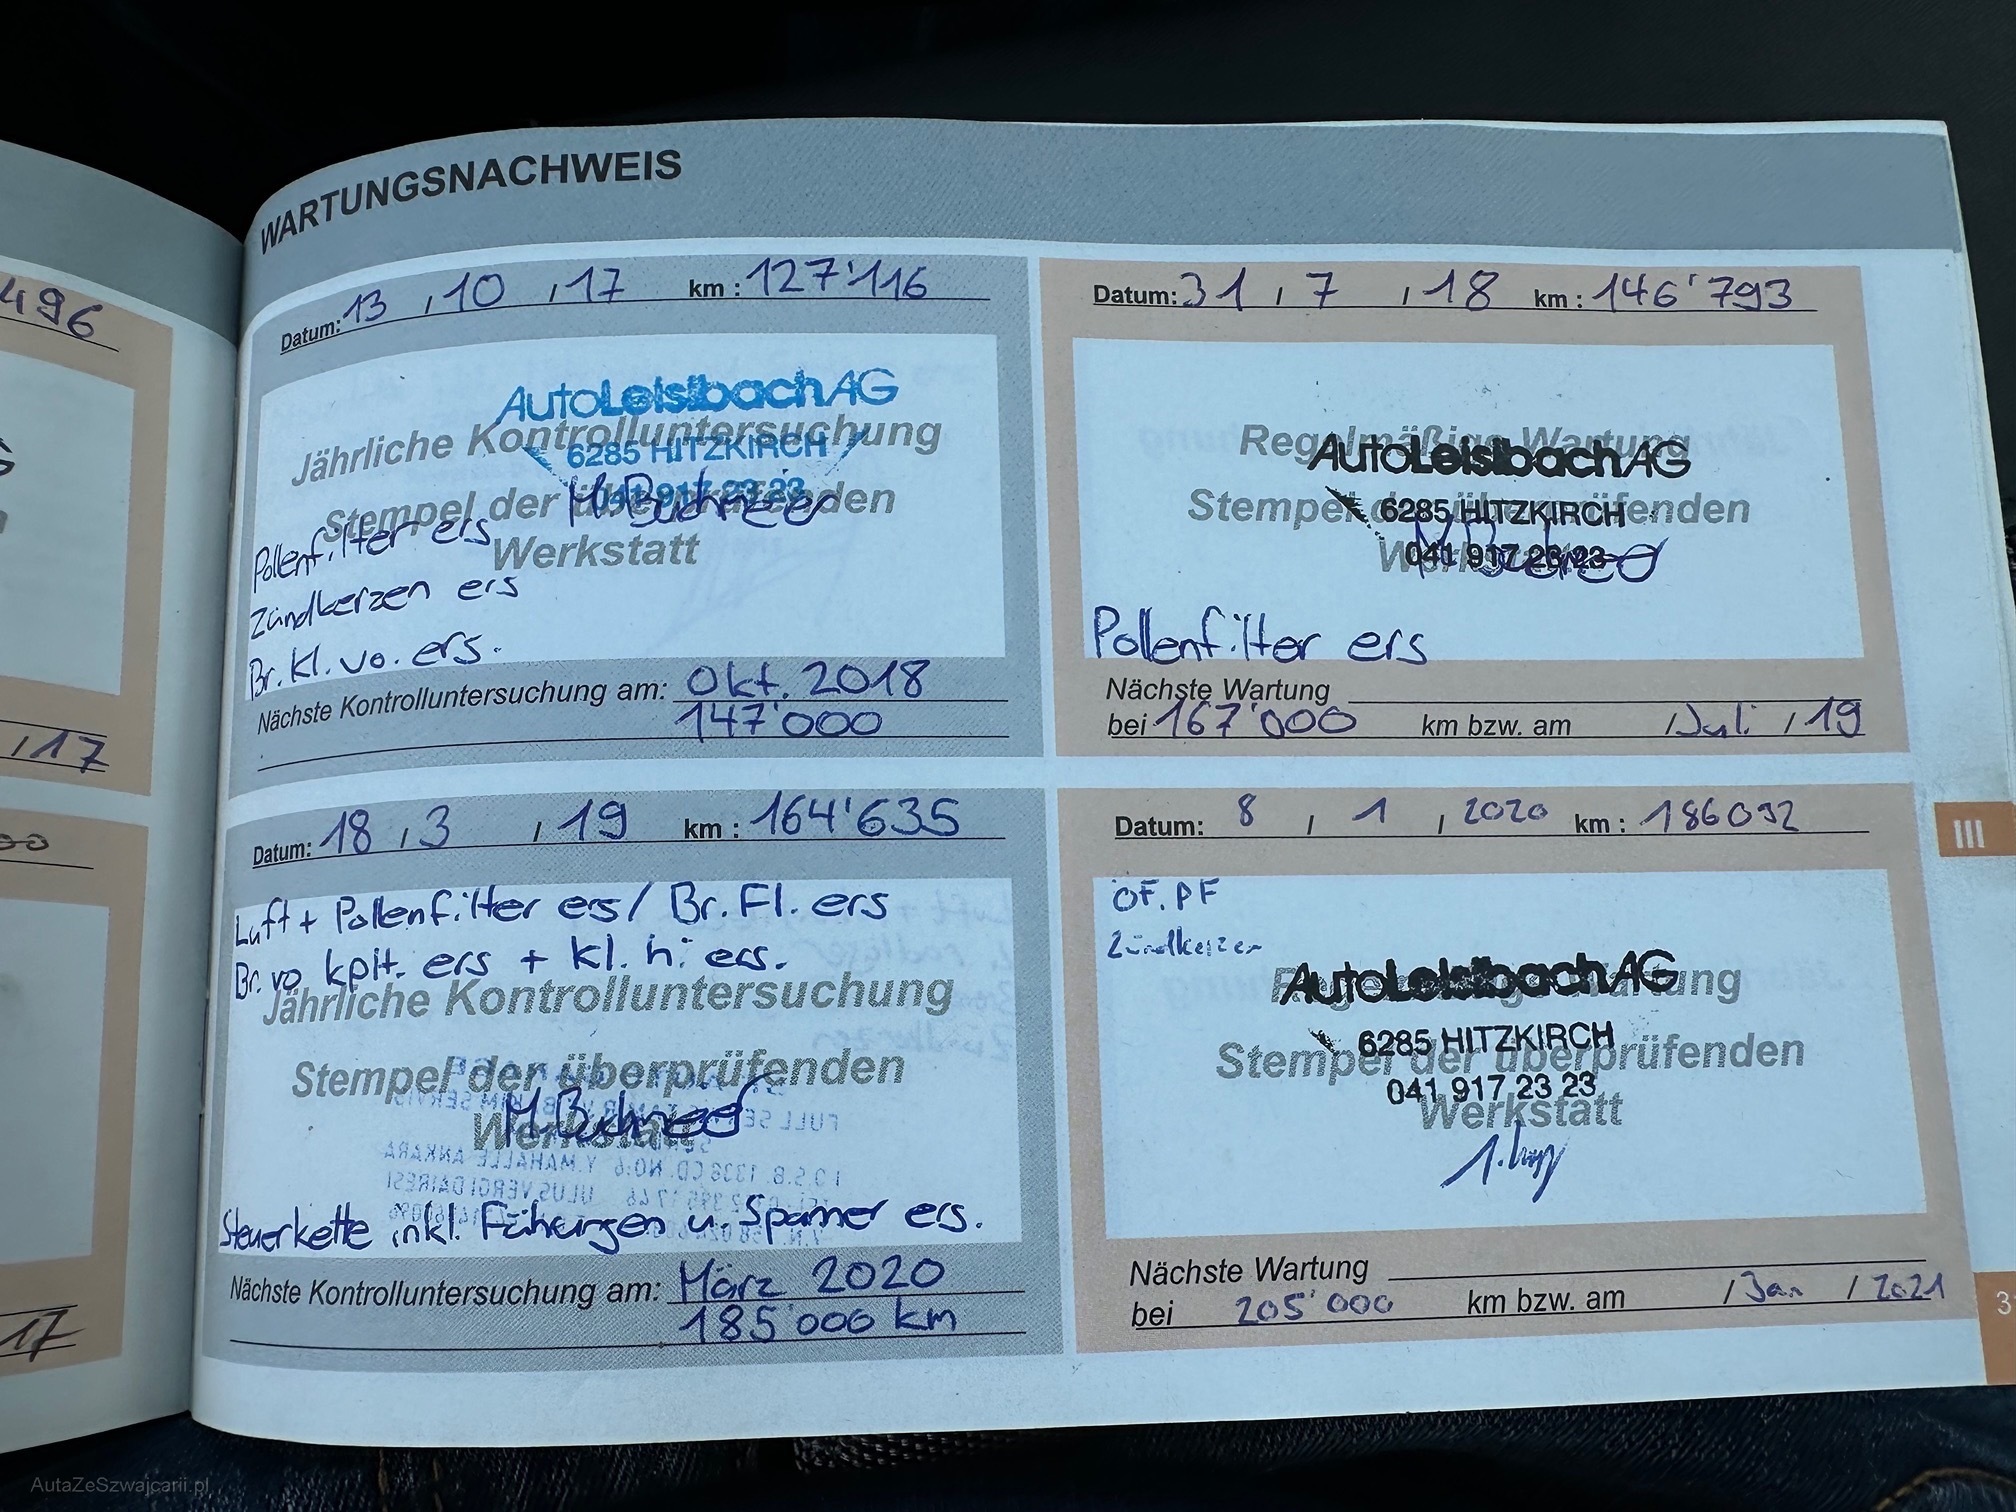 496
/17
17
WARTUNGSNACHWEIS
Datum: 13 / 10 / 17 km : 127'116
AutoLeisibachAG
Jährliche Kontrolluntersuchung
6285 HITZKIRCH
041 917 23 23
Stempel der überprüfenden
Werkstatt
Pollenfilter ers
Zündkerzen ers
Br. Kl. vo. ers.
Nächste Kontrolluntersuchung am: Okt. 2018
147'000
Datum: 31 / 7 / 18 km : 146'793
Regelmäßige Wartung
AutoLeisibachAG
Stempel der überprüfenden
6285 HITZKIRCH
Werkstatt
041 917 23 23
Pollenfilter ers
Nächste Wartung
bei 167'000 km bzw. am / Juli / 19
Datum: 18 / 3 / 19 km : 164'635
Luft + Pollenfilter ers / Br. Fl. ers
Br. vo kplt. ers + Kl. hi ers.
Jährliche Kontrolluntersuchung
Stempel der überprüfenden
Werkstatt
Steuerkette inkl. Führungen u. Spanner ers.
Nächste Kontrolluntersuchung am: März 2020
185'000 km
Datum: 8 / 1 / 2020 km : 186092
ÖF. PF
Zündkerzen
AutoLeisibachAG
6285 HITZKIRCH
Stempel der überprüfenden
041 917 23 23
Werkstatt
Nächste Wartung
bei 205'000 km bzw. am / Jan / 2021
III
3
AutaZeSzwajcarii.pl